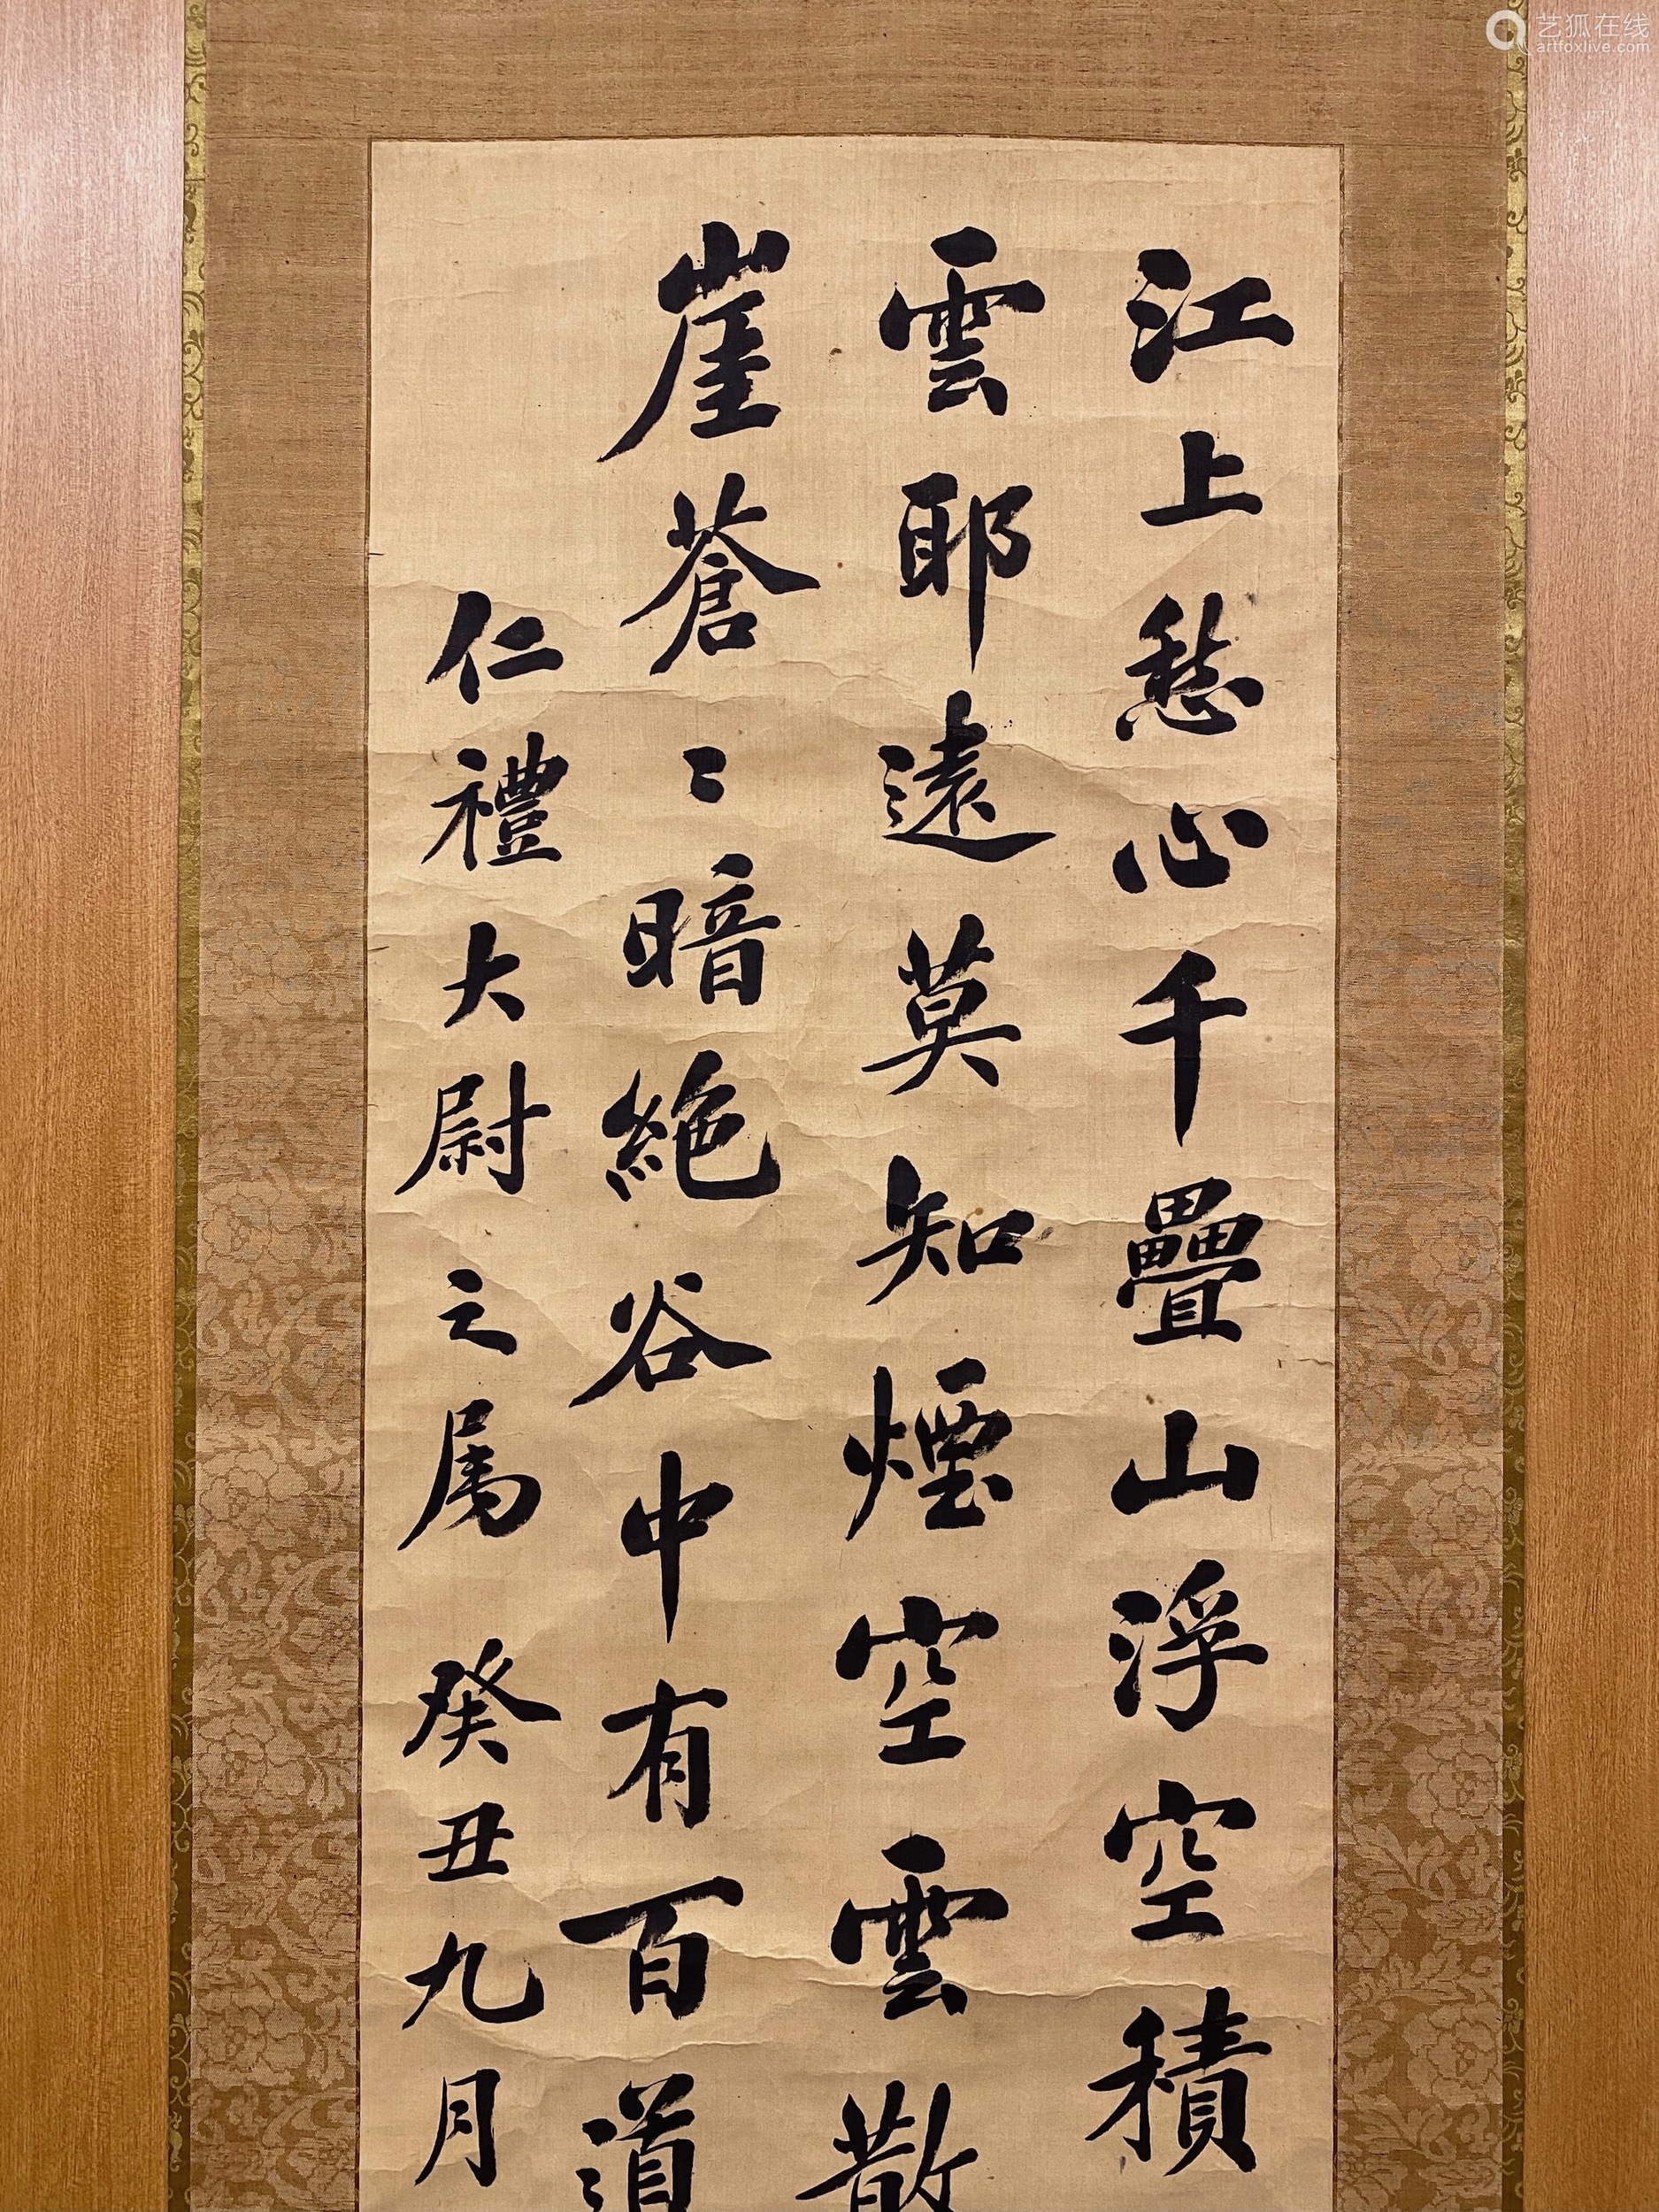 江上愁心千疊山浮空積
雲耶遠莫知煙空雲散
崖蒼〻暗絕谷中有百道
仁禮大尉之属 癸丑九月
艺狐在线
artfoxlive.com